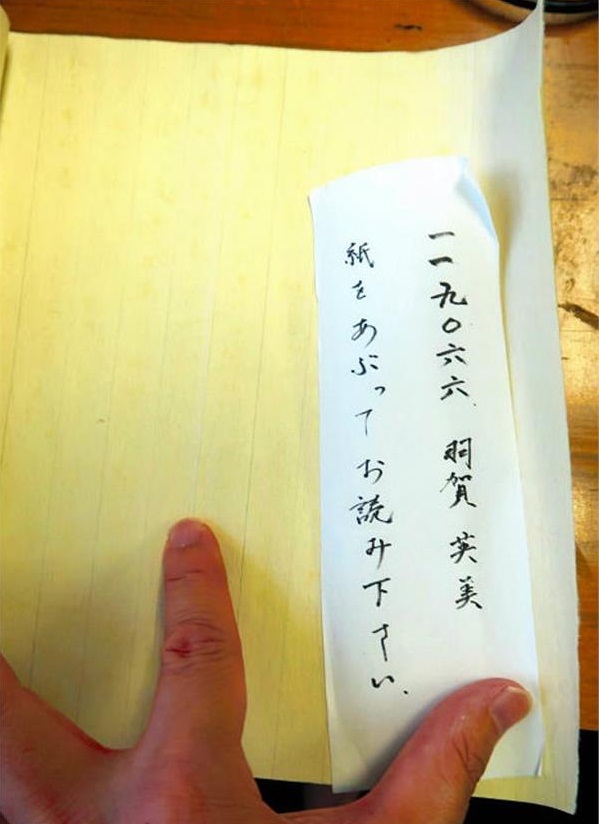 一一九〇六六、羽賀 英美
紙をあぶってお読み下さい。